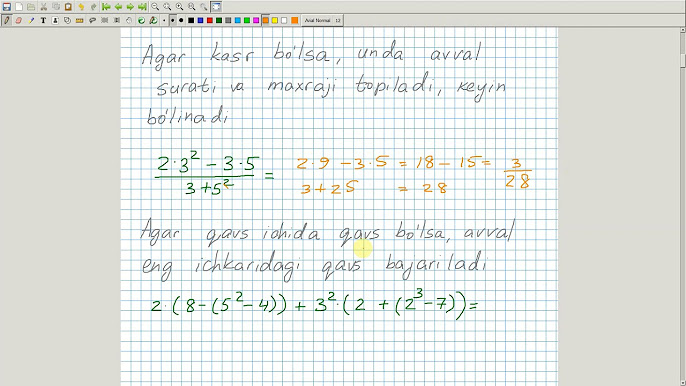 Arial Normal 12
Agar kasr bo'lsa, unda avval
surati va maxraji topiladi, keyin
bo'linadi
2·3² − 3·5 2·9 − 3·5 = 18 − 15 = 3
3+5² = 3+25 = 28 28
Agar qavs ichida qavs bo'lsa, avval
eng ichkaridagi qavs bajariladi
2·(8−(5²−4)) + 3²·(2 + (2³−7)) =